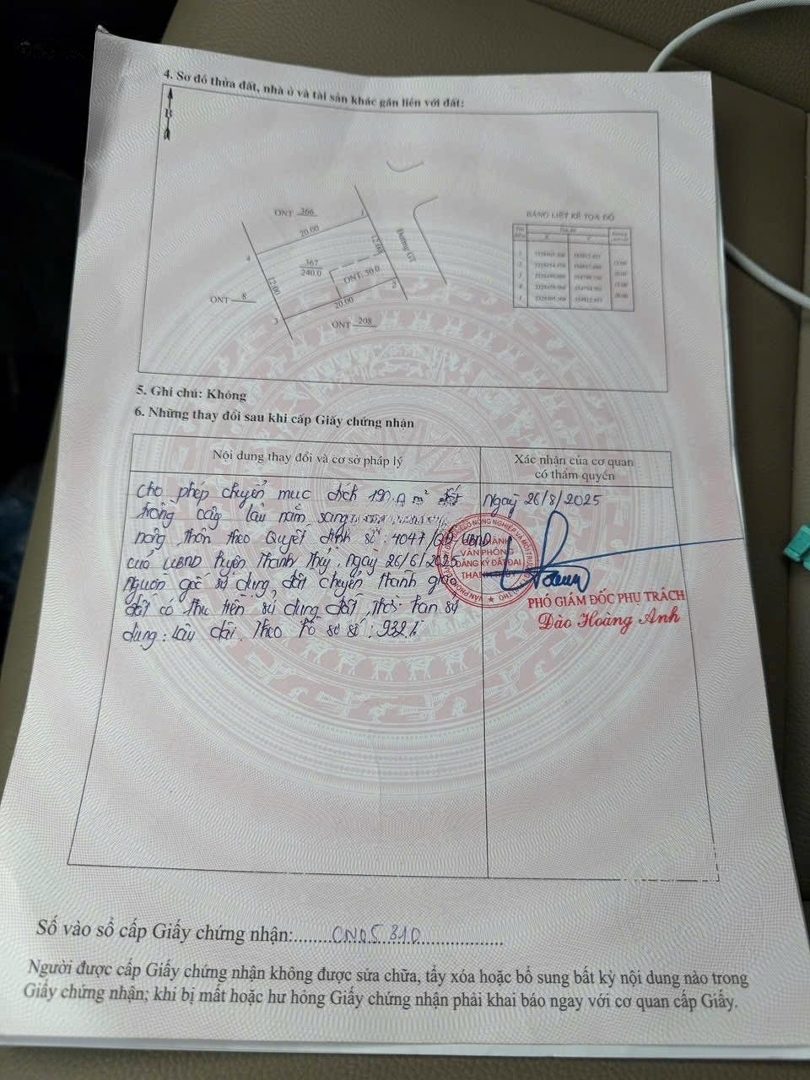 4. Sơ đồ thửa đất, nhà ở và tài sản khác gắn liền với đất:
B
ONT 366
1
20.00
Đường GT
12.00
4
367
240.0
ONT: 50.0
12.00
2
ONT 8
20.00
3
ONT 208
BẢNG LIỆT KÊ TỌA ĐỘ
5. Ghi chú: Không
6. Những thay đổi sau khi cấp Giấy chứng nhận
Nội dung thay đổi và cơ sở pháp lý
Xác nhận của cơ quan
có thẩm quyền
Cho phép chuyển mục đích 190.0 m² đất
trồng cây lâu năm sang
nông thôn theo Quyết định số: 4047/QĐ-UBND
của UBND huyện Thanh Thủy, ngày 26/6/2025
Nguồn gốc sử dụng đất chuyển thành giao
đất có thu tiền sử dụng đất, thời hạn sử
dụng: Lâu dài. Theo hồ sơ số: 932
Ngày 26/8/2025
VĂN PHÒNG
ĐĂNG KÝ ĐẤT ĐAI
PHÓ GIÁM ĐỐC PHỤ TRÁCH
Đào Hoàng Anh
Số vào sổ cấp Giấy chứng nhận:......CN05 810..............
Người được cấp Giấy chứng nhận không được sửa chữa, tẩy xóa hoặc bổ sung bất kỳ nội dung nào trong
Giấy chứng nhận; khi bị mất hoặc hư hỏng Giấy chứng nhận phải khai báo ngay với cơ quan cấp Giấy.